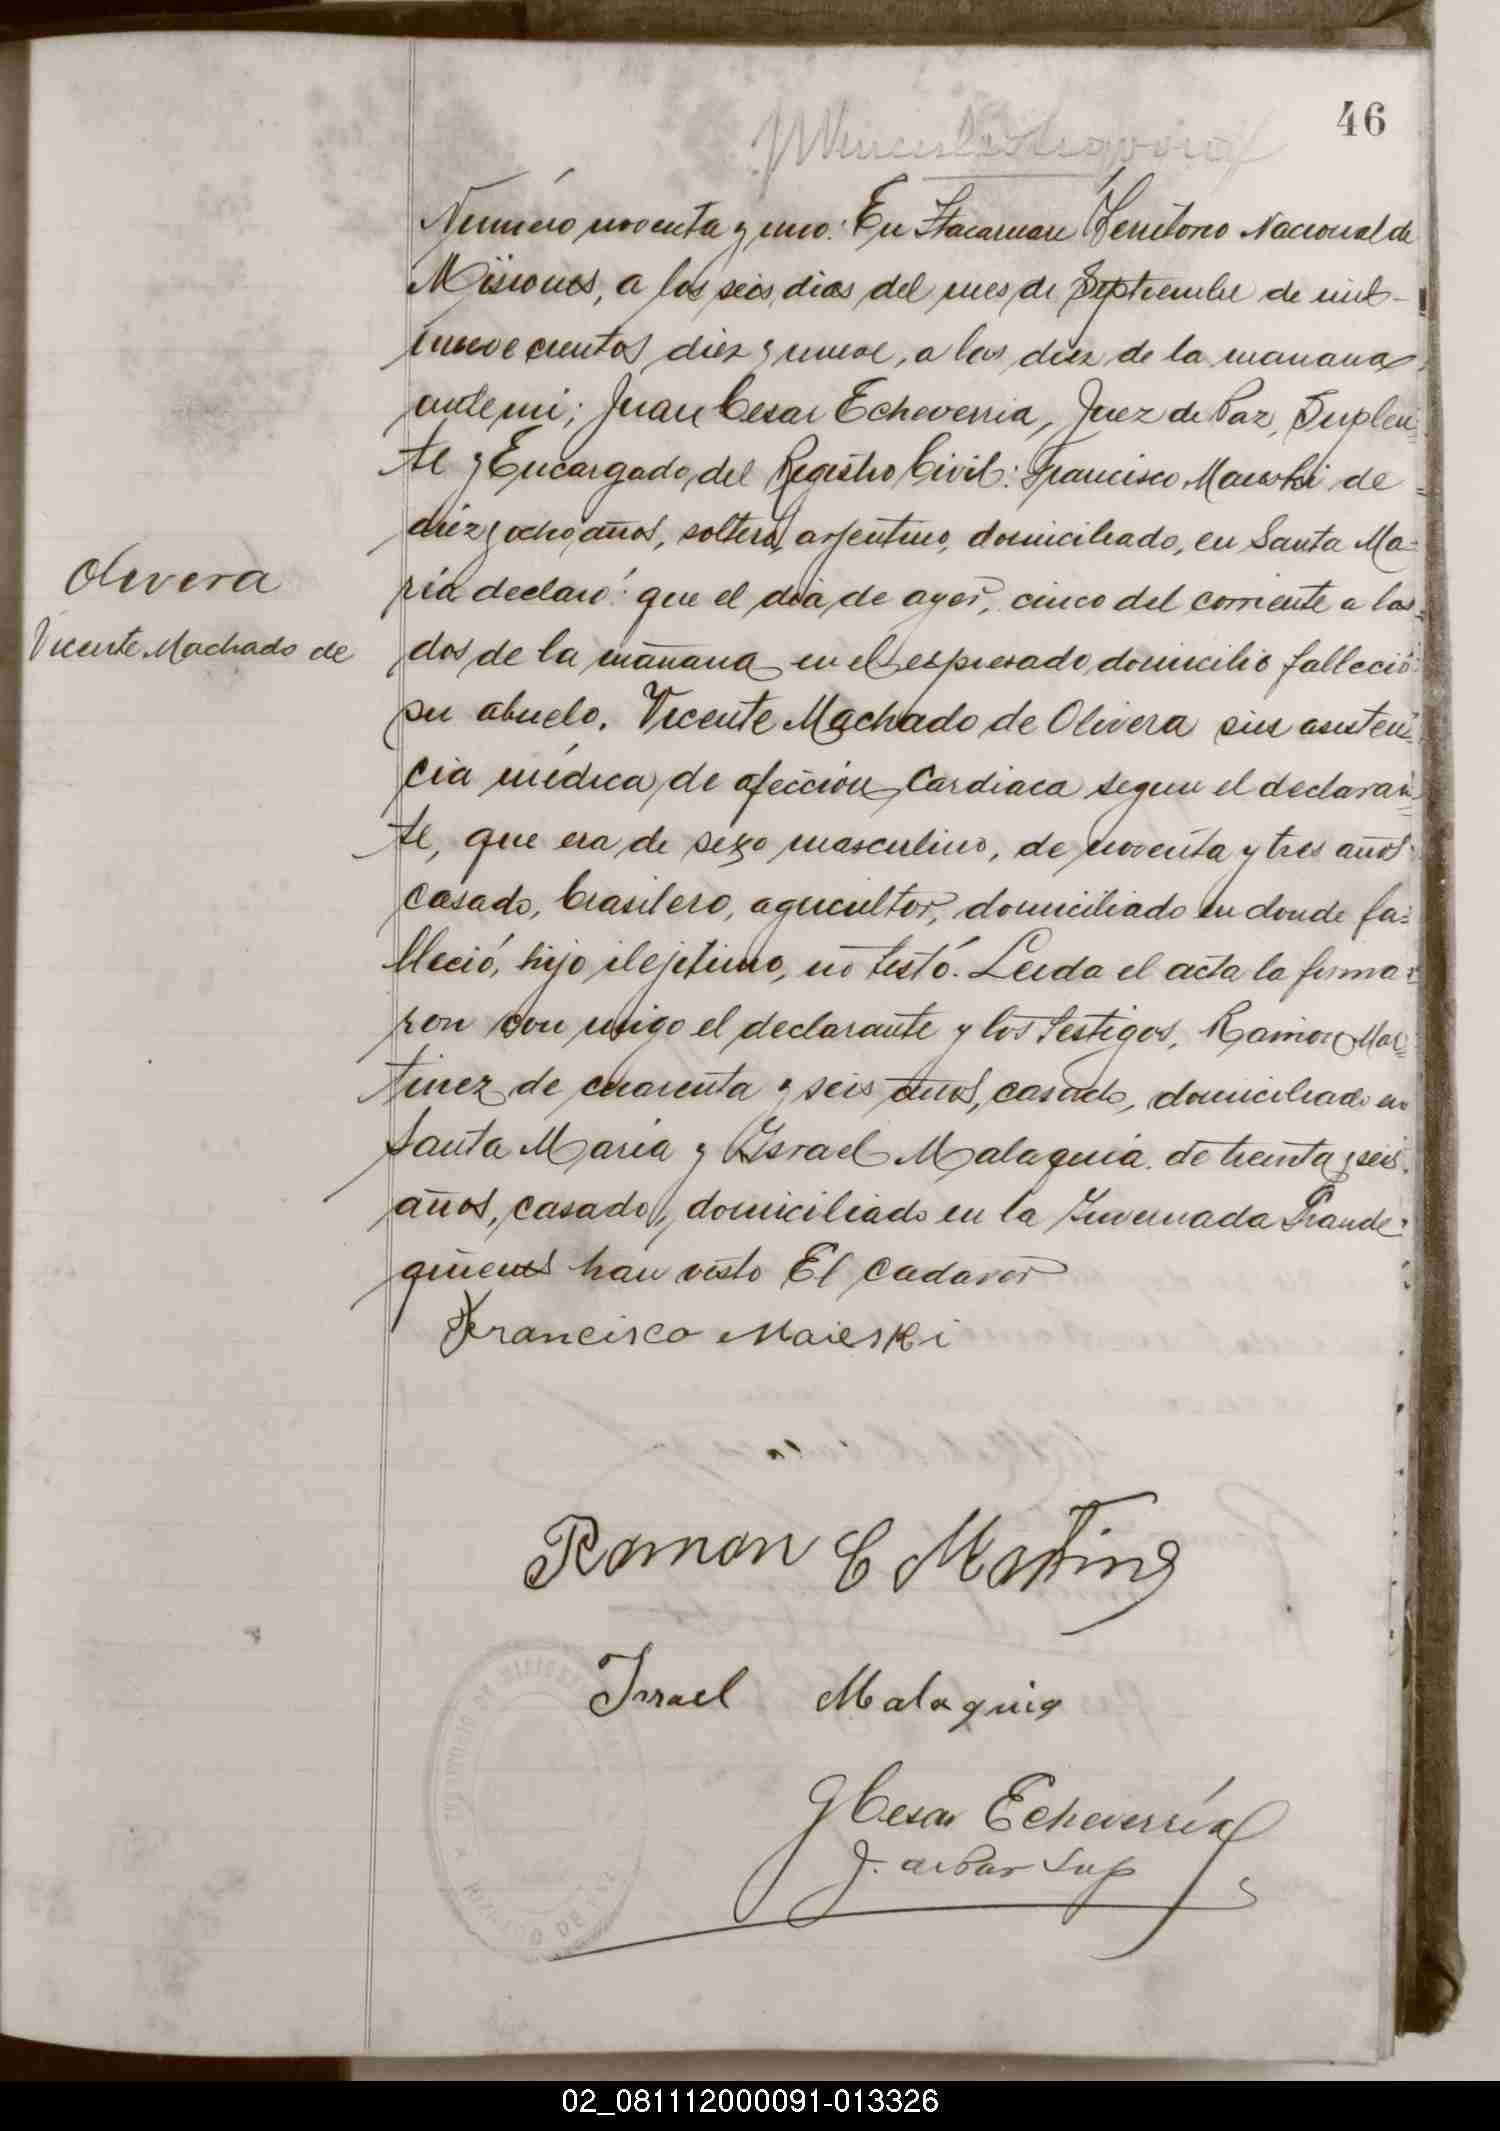 46
Número noventa y uno: En Itacaruare Territorio Nacional de
Misiones, a los seis dias del mes de Septiembre de mil
nuevecientos diez y nueve, a las diez de la manana
ante mi; Juan Cesar Echeverria, Juez de Paz, Suplen-
te y Encargado del Registro Civil: Francisco Maieski de
diez y ocho años, soltero, arjentino, domiciliado, en Santa Ma-
ria declaró: que el dia de ayer, cinco del corriente a las
dos de la mañana en el espresado domicilio falleció
su abuelo, Vicente Machado de Olivera sin asisten-
cia médica de afección Cardiaca segun el declaran-
te, que era de sexo masculino, de noventa y tres años
casado, brasilero, agricultor, domiciliado en donde fa-
lleció, hijo ilejitimo, no testó. Leida el acta la firma-
ron con migo el declarante y los testigos, Ramon Mar-
tinez de cuarenta y seis años, casado, domiciliado en
Santa Maria y Israel Malaquia de treinta y seis
años, casado, domiciliado en la Invernada Grande
quienes han visto El cadaver
Olivera
Vicente Machado de
Francisco Maieski
Ramon C Martinez
Israel Malaquia
J Cesar Echeverría
J. de Paz Sup
02_081112000091-013326